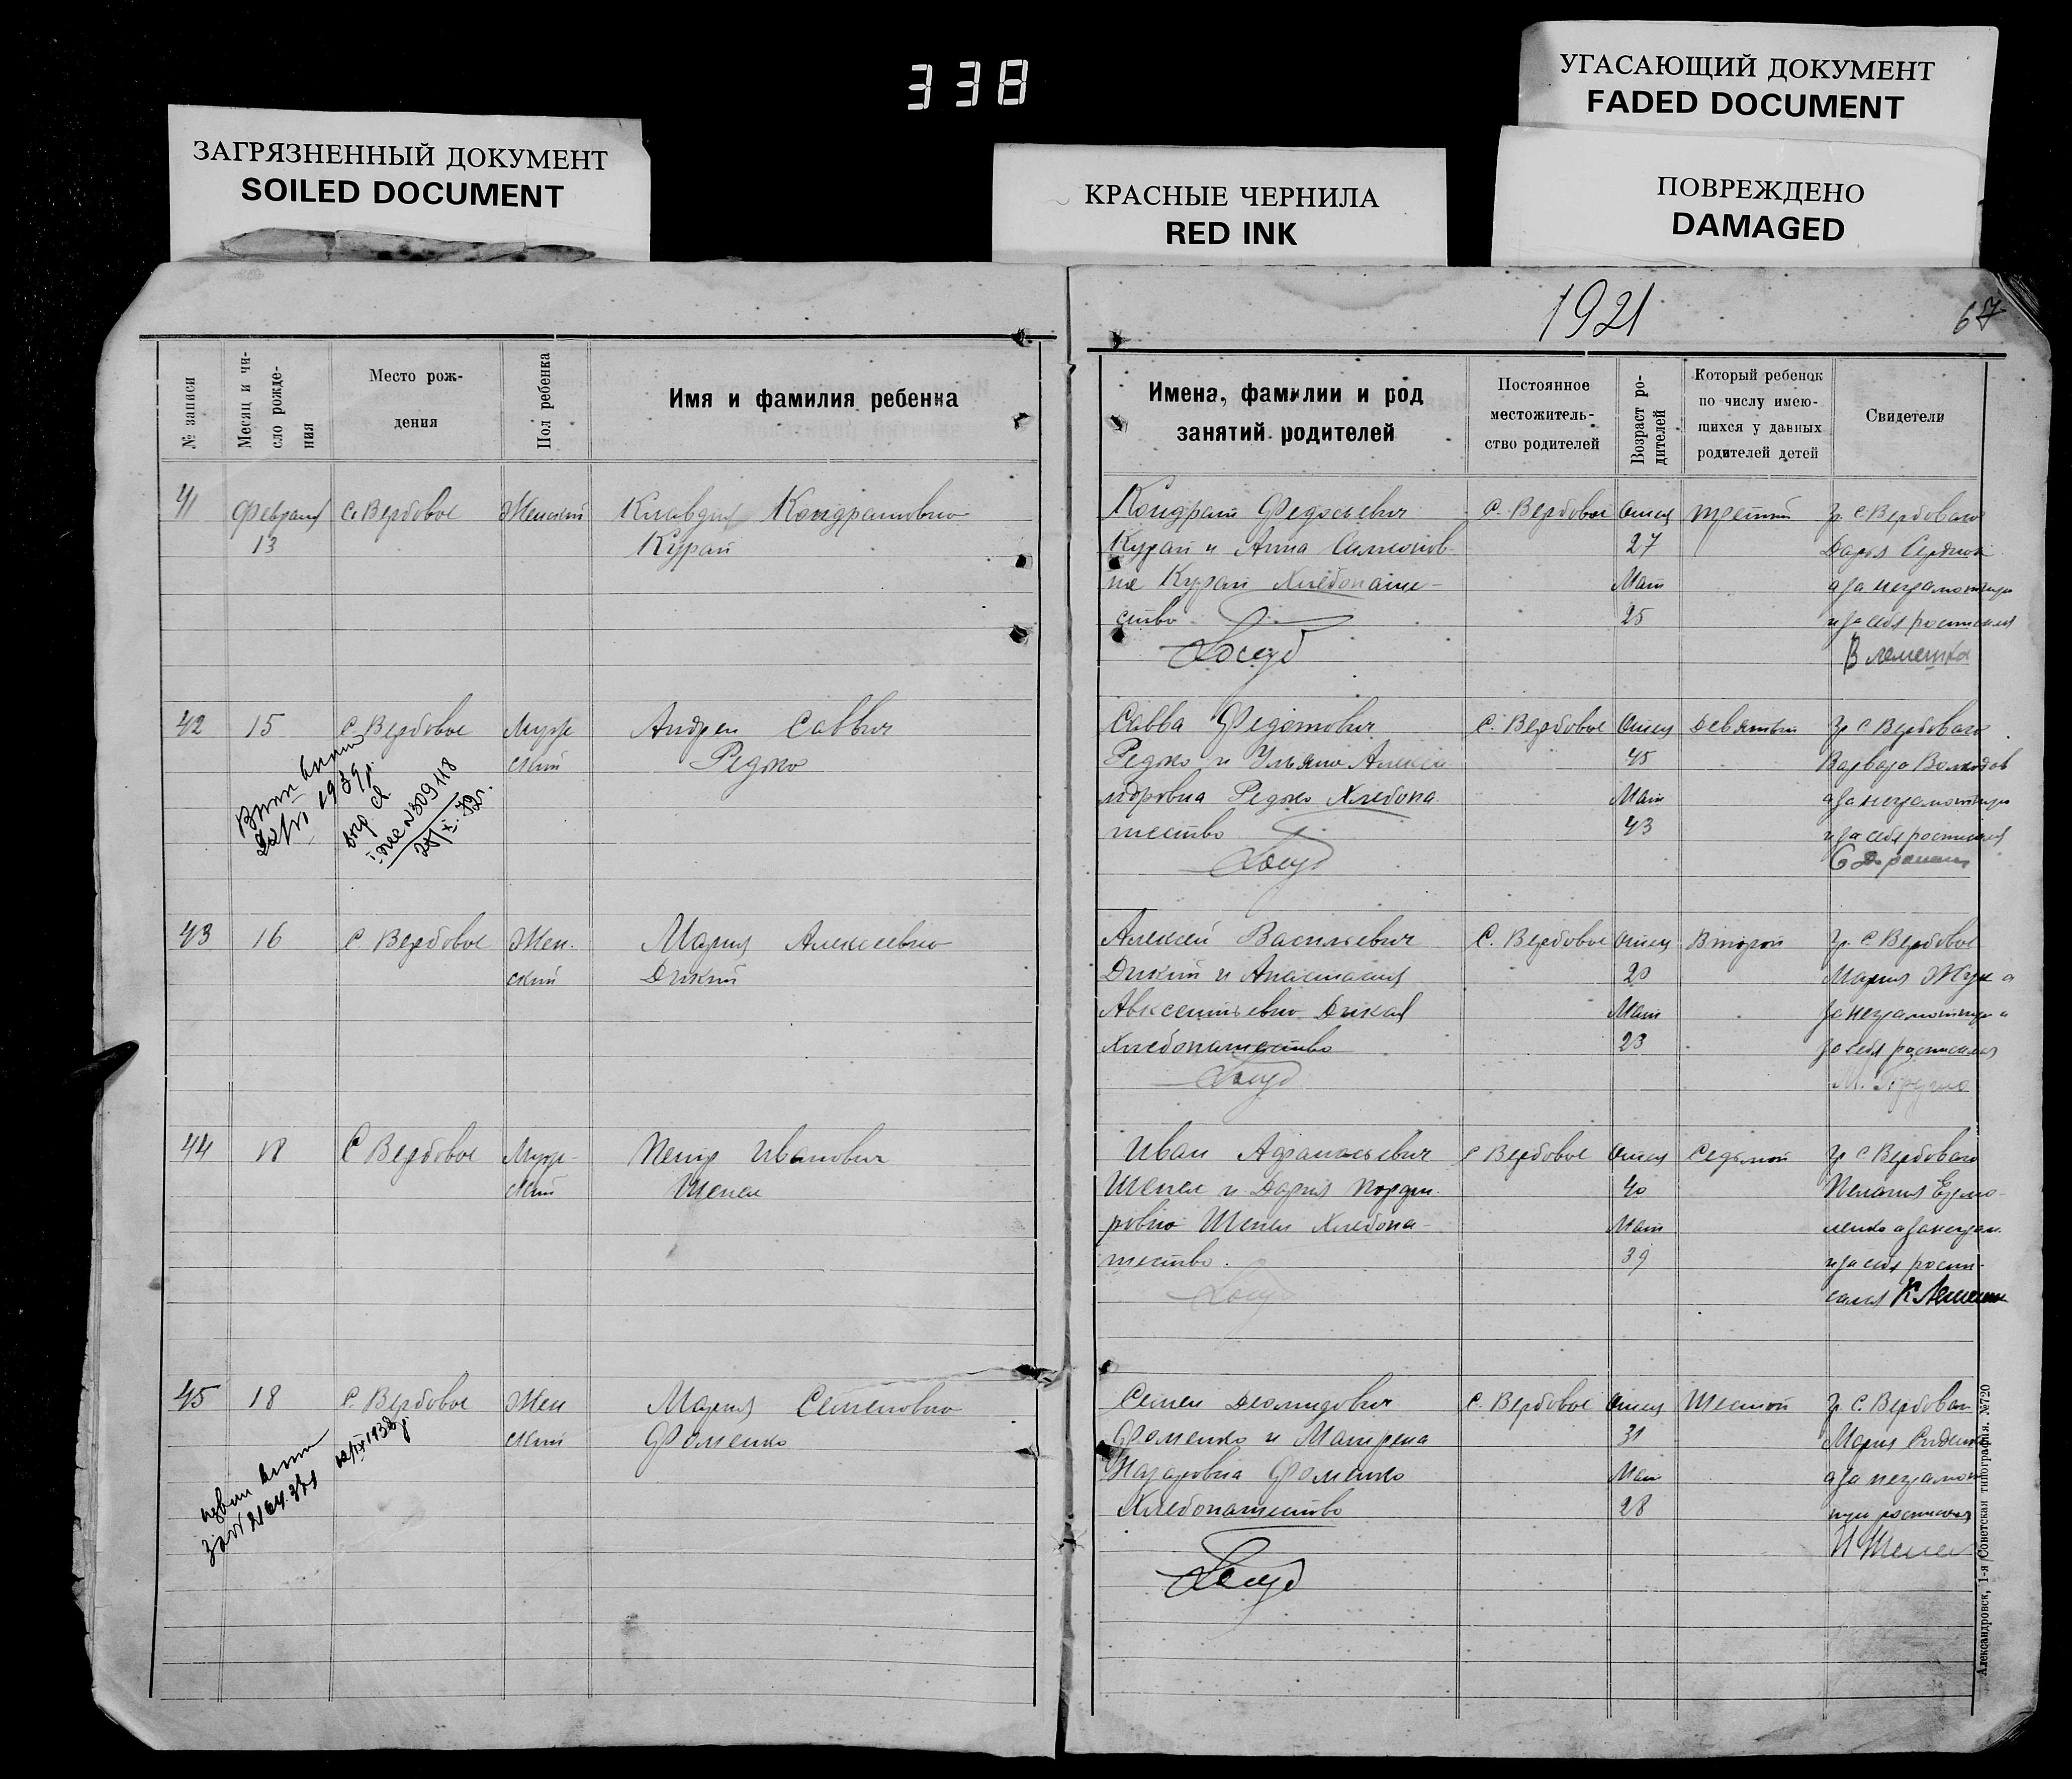 338
УГАСАЮЩИЙ ДОКУМЕНТ
FADED DOCUMENT
ЗАГРЯЗНЕННЫЙ ДОКУМЕНТ
SOILED DOCUMENT
КРАСНЫЕ ЧЕРНИЛА
RED INK
ПОВРЕЖДЕНО
DAMAGED
№ записи
Месяц и чи-
сло рожде-
ния
Место рож-
дения
Пол ребенка
Имя и фамилия ребенка
41
Февраля
13
С. Вербовое
Женский
Клавдия Кондратовна
Курат
42
15
С. Вербовое
Муж
ский
Андрей Саввич
Редько
1939 г.
43
16
С. Вербовое
Жен.
ский
Мария Алексеевна
Дикий
44
18
С Вербовое
Муж-
ский
Петр Иванович
Шепель
45
18
С. Вербовое
Жен
ский
Мария Семеновна
Фоменко
1921
67
Имена, фамилии и род
занятий родителей
Постоянное
местожитель-
ство родителей
Возраст ро-
дителей
Который ребенок
по числу имею-
щихся у данных
родителей детей
Свидетели
Кондрат Федосьевич
Курат и Анна Симонов
на Курат Хлебопаше-
ство
С. Вербовое
Отец
27
Мат
25
третий
гр. С. Вербового
Дарья
а за неграмотную
и за себя росписался
В Лемешка
Савва Федотович
Редько и Ульяна Алекса
ндровна Редько Хлебопа
шество
С. Вербовое
Отец
45
Мат
43
Девятый
гр С Вербового
Варвара
а за неграмотную
и за себя росписался
Алексей Васильевич
Дикий и Анастасия
Авксентьевна Дикая
Хлебопашество
С. Вербовое
Отец
20
Мат
23
Второй
гр. С Вербовое
Мария Жук а
за неграмотную и
за себя росписался
Иван Афанасьевич
Шепель и Дария
ровна Шепель Хлебопа-
шество.
С Вербовое
Отец
40
Мат
39
Седьмой
гр С Вербового
Пелагия
и за себя роспи-
сался
Семен Деомидович
Фоменко и Матрена
Назаровна Фоменко
Хлебопашество
С. Вербовое
Отец
31
Мат
28
Шестой
гр. С. Вербовом
Мария
а за неграмот
ную росписался
И Шепель
Александровск, 1-я Советская типография. №720